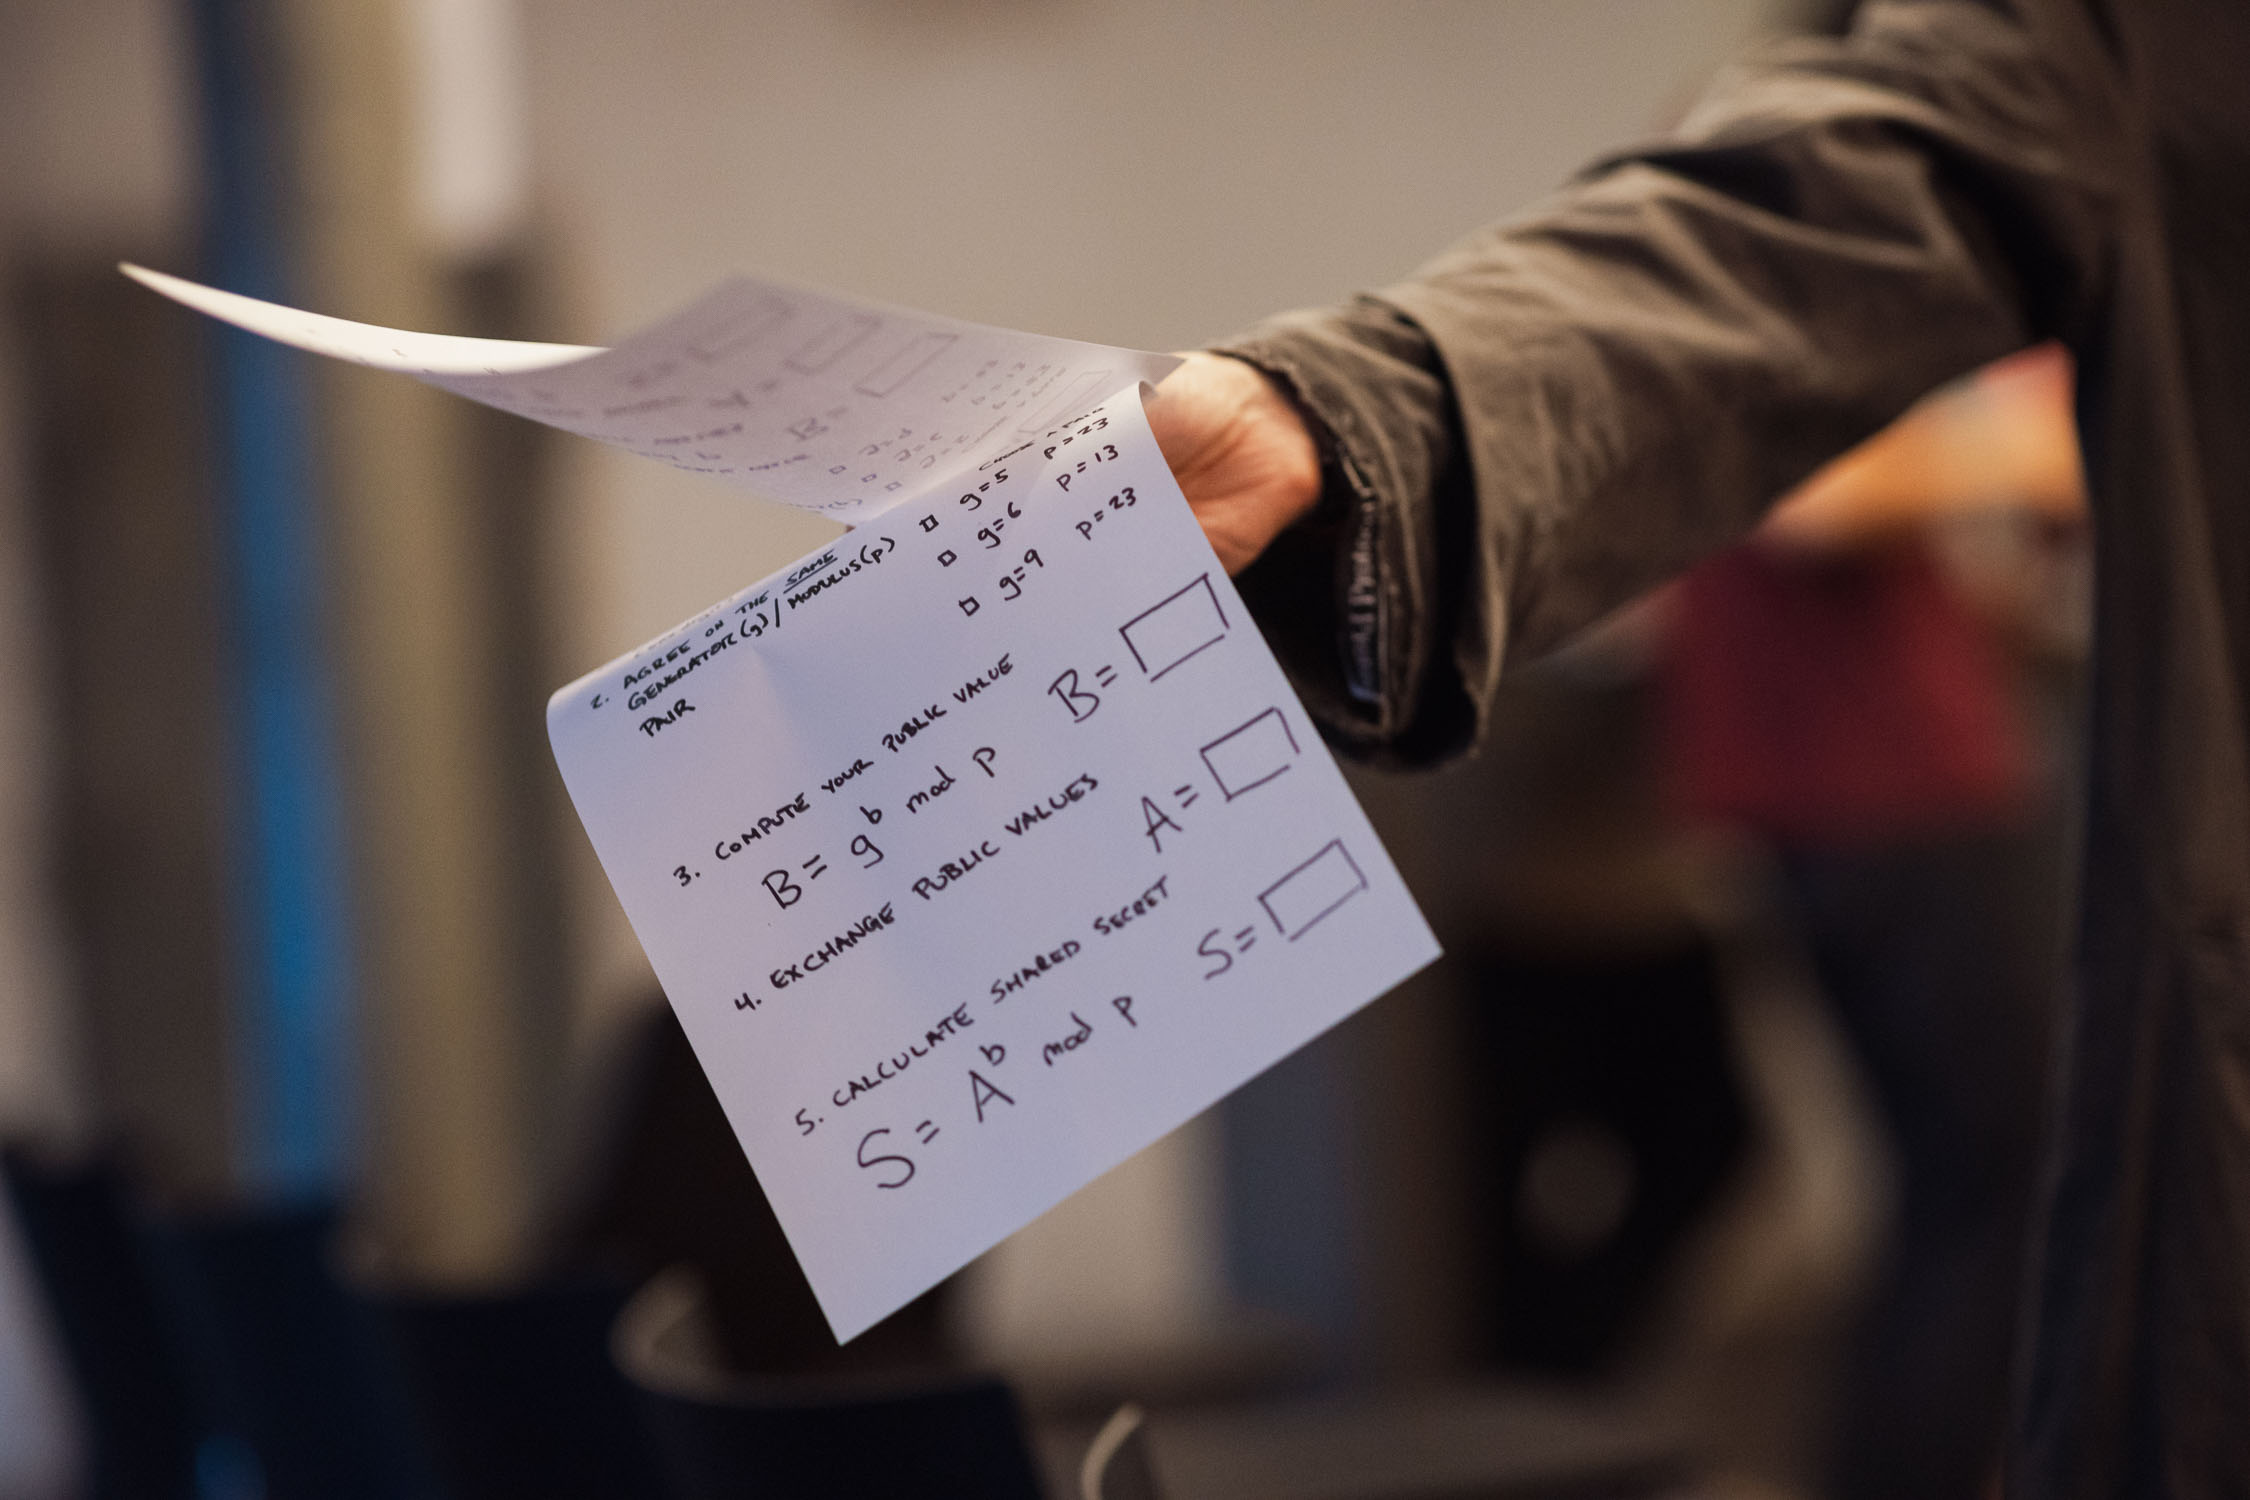 CHOOSE A PAIR
2. AGREE ON THE SAME
GENERATOR(g)/MODULUS(p)
PAIR
g=5 p=23
g=6 p=13
g=9 p=23
3. COMPUTE YOUR PUBLIC VALUE
B= g^b mod p B=
4. EXCHANGE PUBLIC VALUES A=
5. CALCULATE SHARED SECRET
S= A^b mod p S=